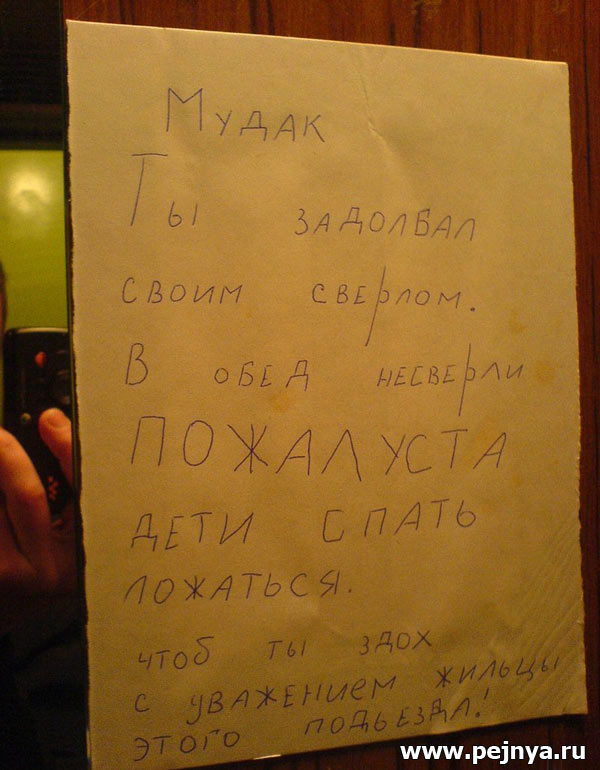 Мудак
Ты задолбал
своим сверлом.
В обед несверли
ПОЖАЛУСТА
дети спать
ложаться.
чтоб ты здох
с уважением жильцы
этого подьезда!
www.pejnya.ru